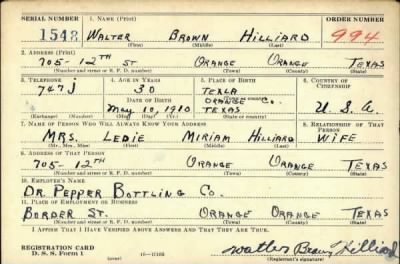 SERIAL NUMBER 1. NAME (Print) ORDER NUMBER
1543 WALTER BROWN HILLIARD 994
(First) (Middle) (Last)
2. ADDRESS (Print)
705-12th ST ORANGE ORANGE TEXAS
(Number and street or R. F. D. number) (Town) (County) (State)
3. TELEPHONE 4. AGE IN YEARS 5. PLACE OF BIRTH 6. COUNTRY OF CITIZENSHIP
747J 30 TEXLA
DATE OF BIRTH ORANGE CO.
MAY 10, 1910 TEXAS U.S.A.
(Exchange) (Number) (Mo.) (Day) (Yr.) (State or country)
7. NAME OF PERSON WHO WILL ALWAYS KNOW YOUR ADDRESS 8. RELATIONSHIP OF THAT PERSON
MRS. LEDIE MIRIAM HILLIARD WIFE
(Mr., Mrs., Miss) (First) (Middle) (Last)
9. ADDRESS OF THAT PERSON
705-12th ORANGE ORANGE TEXAS
(Number and street or R. F. D. number) (Town) (County) (State)
10. EMPLOYER'S NAME
DR. PEPPER BOTTLING CO.
11. PLACE OF EMPLOYMENT OR BUSINESS
BORDER ST. ORANGE ORANGE TEXAS
(Number and street or R. F. D. number) (Town) (County) (State)
I AFFIRM THAT I HAVE VERIFIED ABOVE ANSWERS AND THAT THEY ARE TRUE.
REGISTRATION CARD
D. S. S. Form 1 Walter Brown Hilliard
(Registrant's signature)